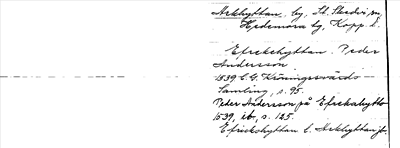 Arkhyttan, by, St. Skedvi sn,
Hedemora tg, Kopp. l.
Efrekehyttan. Peder
Andersson
1539 C. G. Kröningssvärds
Samling, s. 95.
Peder Andersson på Efrekahytto
1539, ib., s. 125.
Efrickehyttan l. Arkhyttan